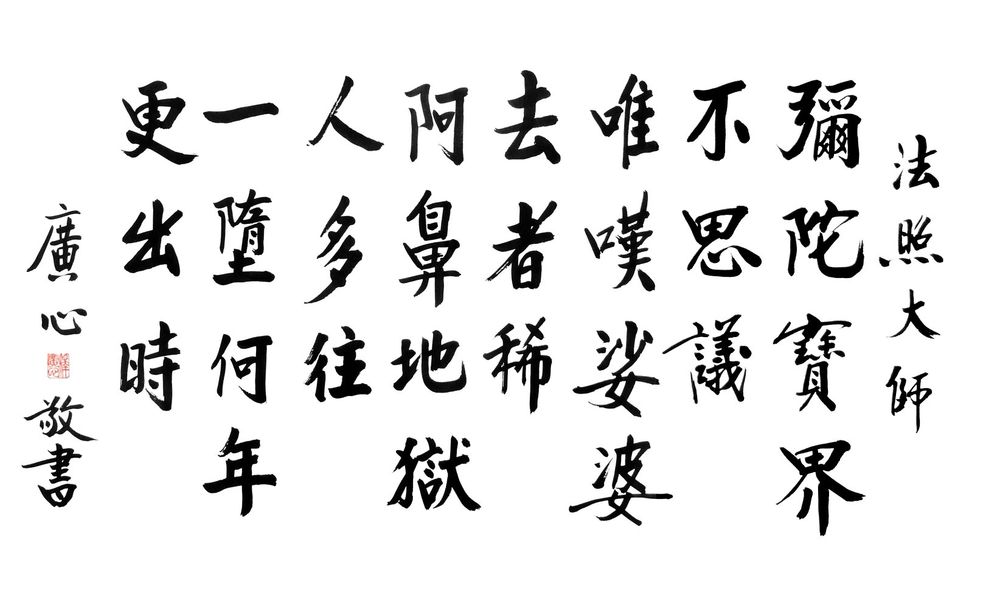 法照大師
彌陀寶界
不思議
唯嘆娑婆
去者稀
阿鼻地獄
人多往
一墮何年
更出時
廣心
敬書